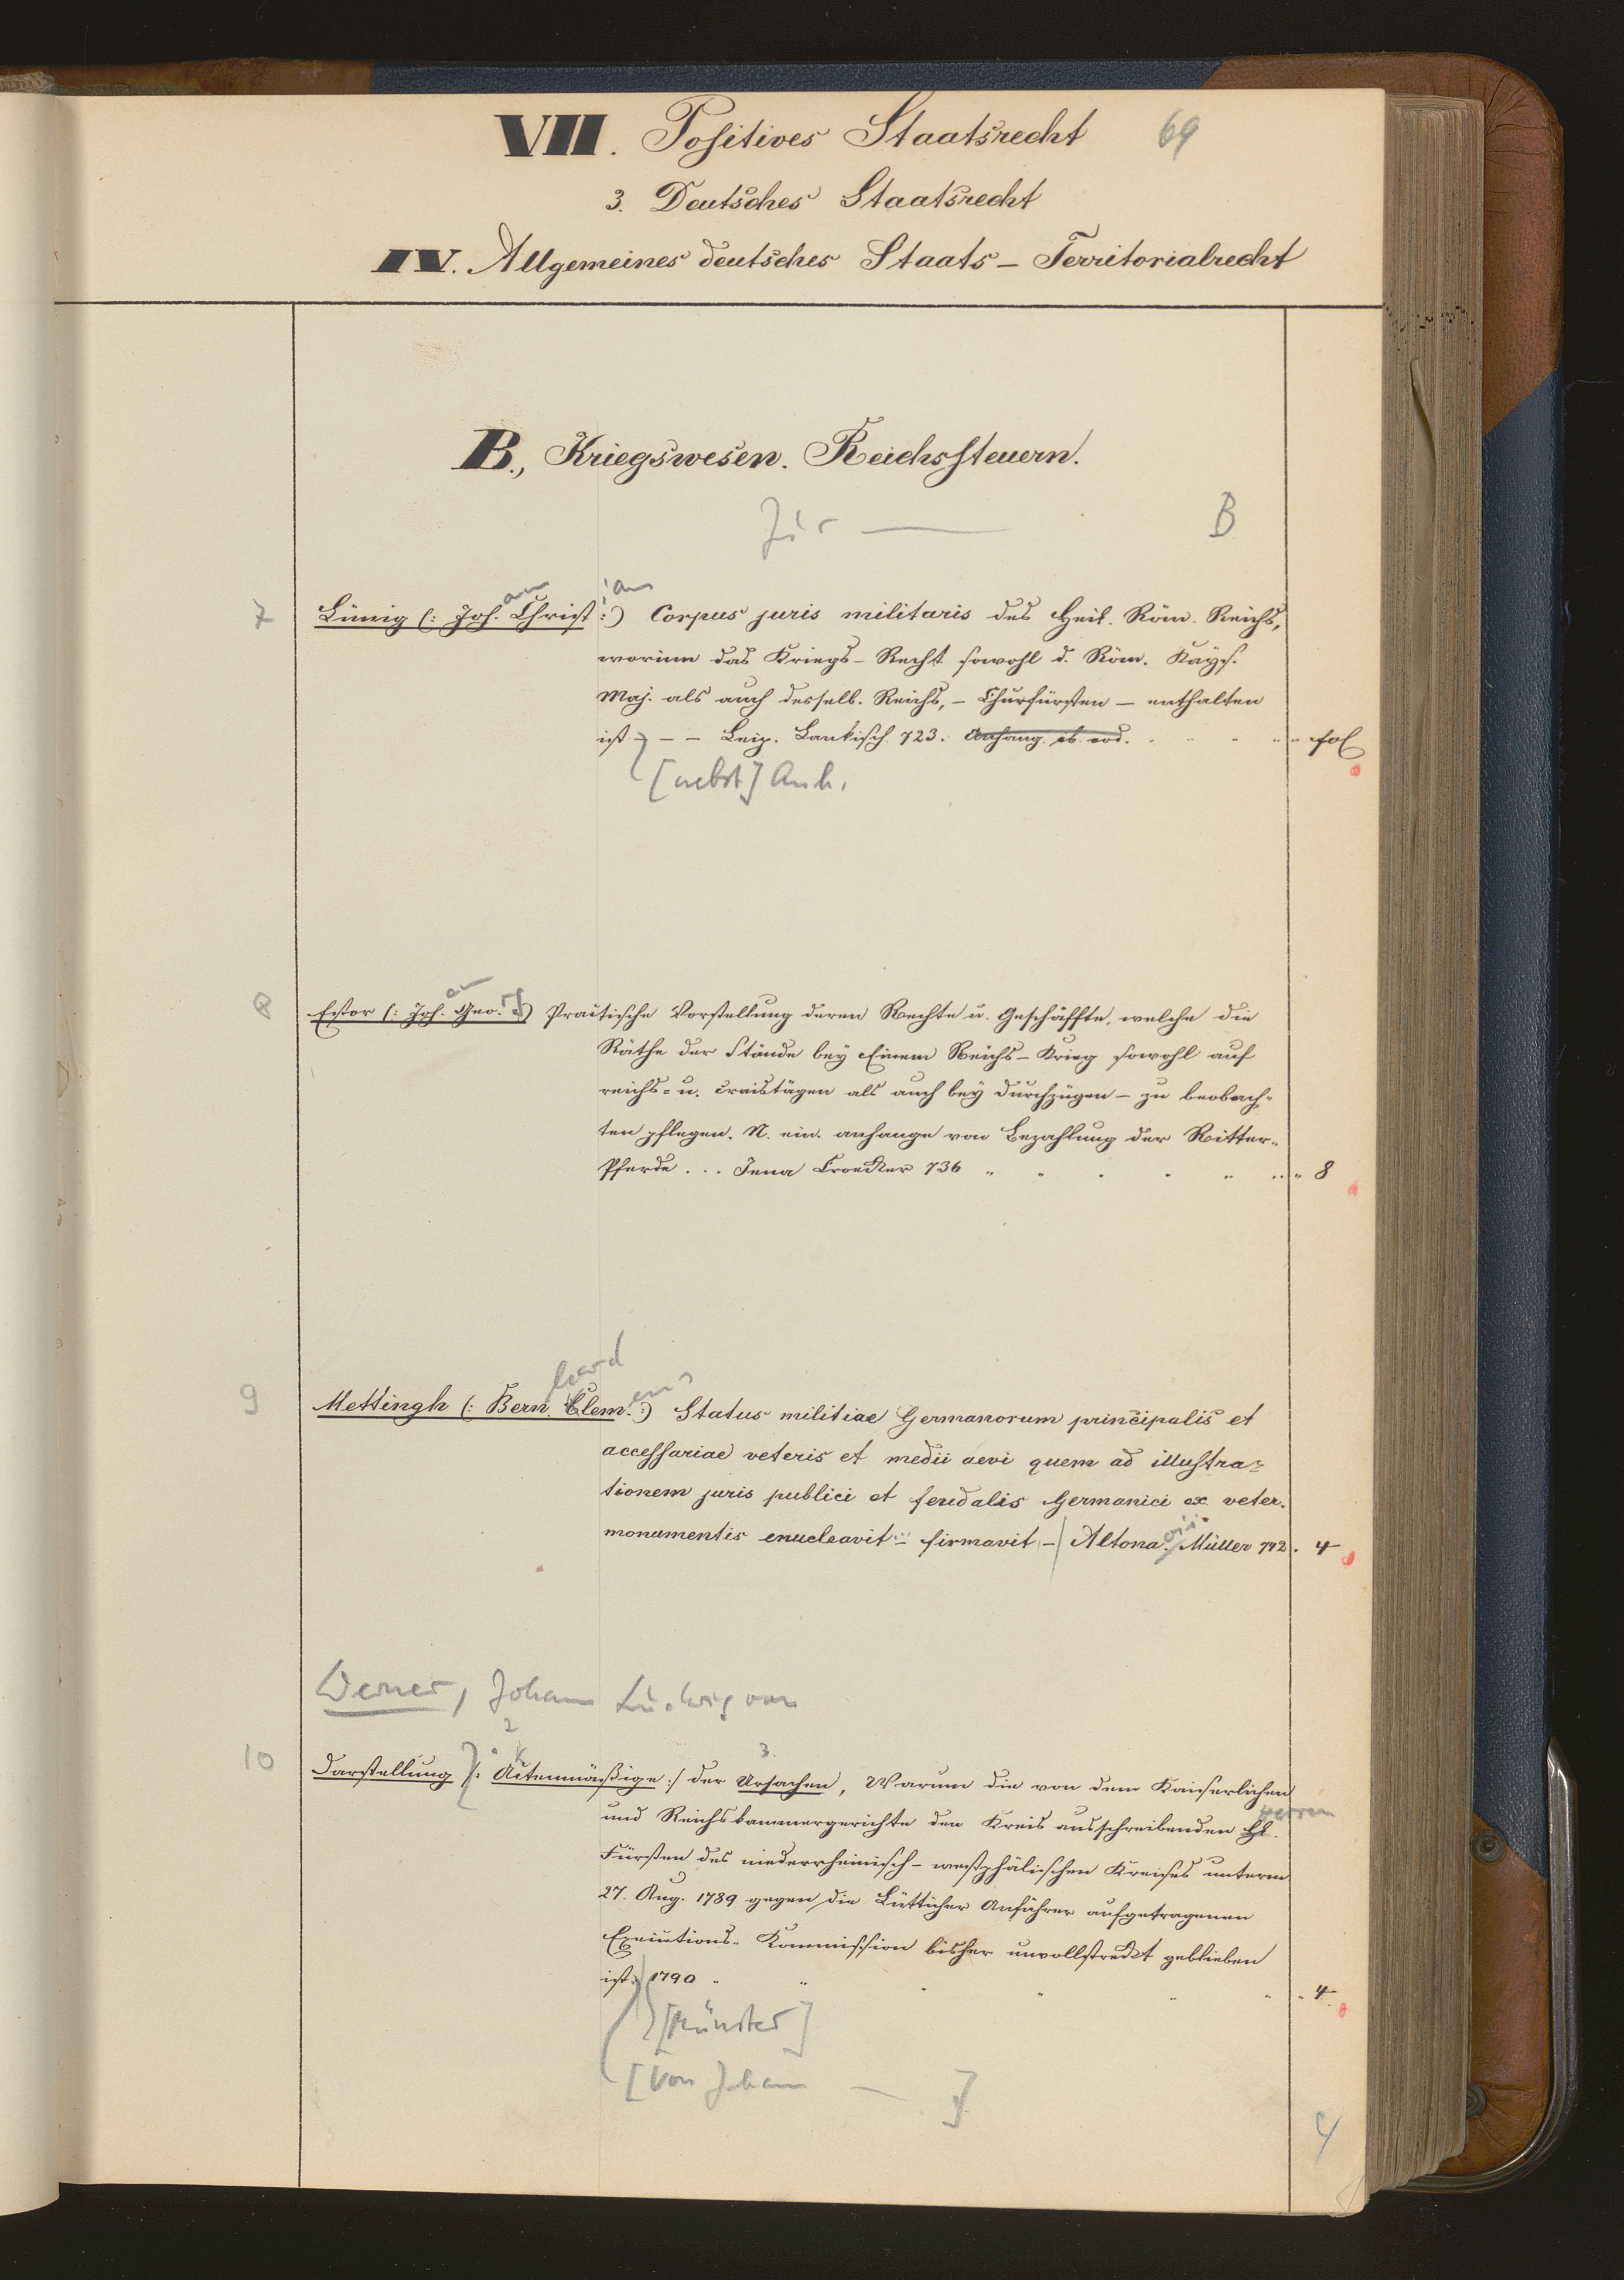 VII. Positives Staatsrecht 69
3. Deutsches Staatsrecht
IV. Allgemeines deutsches Staats-Territorialrecht
B., Kriegswesen. Reichssteuern.
Jur — B
an ian
7 Lünig (: Joh. Christ :) Corpus juris militaris des Heil. Röm. Reichs,
worinn das Kriegs-Recht sowohl d. Röm. Kays.
Maj. als auch desselb. Reichs, - Churfürsten - enthalten
ist - - - Leip. Lankisch 723. Anhang. ib. eod. fol
[nebst] Anh.
an rg
8 Estor (: Joh. Geo. :) Practische Vorstellung deren Rechte u. Geschäffte, welche die
Räthe der Stände bey Einem Reichs-Krieg sowohl auf
reichs- u. craistägen als auch bey durchzügen - zu beobach-
ten pflegen. N. ein. anhange von Bezahlung der Ritter-
Pferde ... Jena Croecker 736 8
hard ens
9 Mettingh (: Bern. Clem. :) Status militiae Germanorum principalis et
accessariae veteris et medii aevi quem ad illustra-
tionem juris publici et feudalis Germanici ex veter.
monumentis enucleavit - firmavit - Altona. Müller 742. 4
Werner, Johann Ludwig von
2 k 3.
10 Darstellung /: Actenmäßige :/ der Ursachen, Warum die von dem Kaiserlichen
herren
und Reichskammergerichte den Kreis ausschreibenden HH.
Fürsten des niederrheinisch-westphälischen Kreises unterm
27. Aug. 1789 gegen die Lütticher Anführer aufgetragenen
Executions-Kommission bisher unvollstreckt geblieben
ist. 1790 4.
[Münster]
[von Johann — ]
4